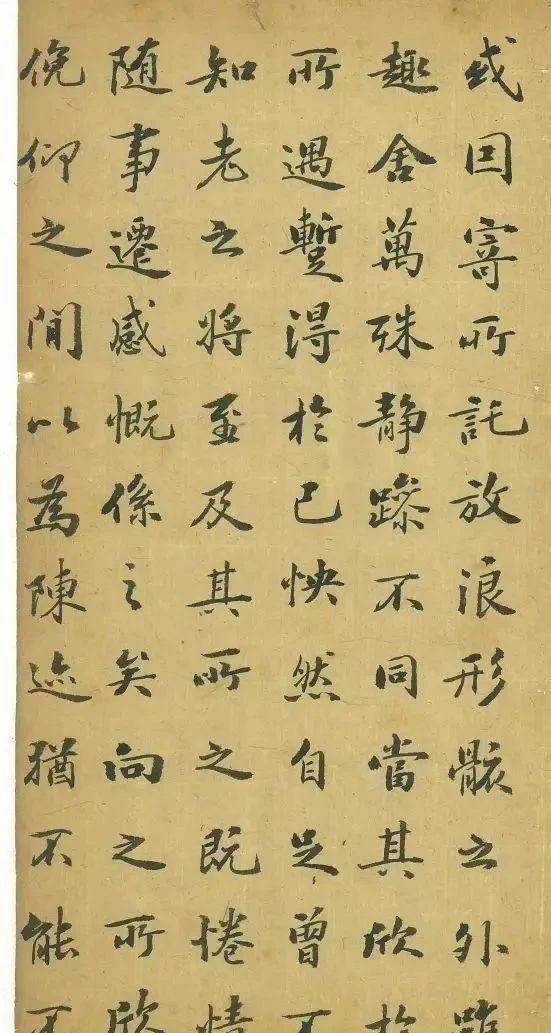 或因寄所託放浪形骸之外雖
趣舍萬殊静躁不同當其欣於
所遇蹔得於己怏然自足曾不
知老之將至及其所之既惓情
随事遷感慨係之矣向之所欣
俛仰之間以為陳迹猶不能不